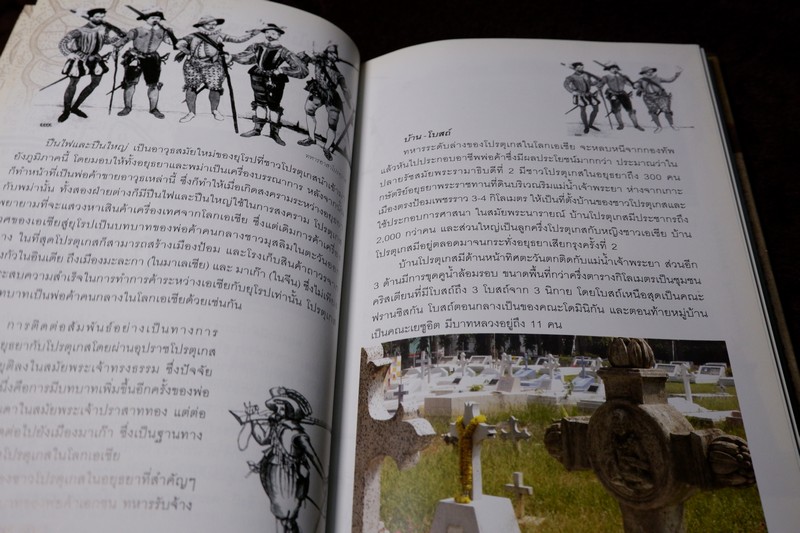 ปืนไฟและปืนใหญ่ เป็นอาวุธสมัยใหม่ของยุโรปที่ชาวโปรตุเกสนำเข้ามา
ยังภูมิภาคนี้ โดยมอบให้ทั้งอยุธยาและพม่าเป็นเครื่องบรรณาการ หลังจากนั้น
ก็ทำหน้าที่เป็นพ่อค้าขายอาวุธเหล่านี้ ซึ่งก็ทำให้เมื่อเกิดสงครามระหว่างอยุธยา
กับพม่านั้น ทั้งสองฝ่ายต่างก็มีปืนไฟและปืนใหญ่ใช้ในการสงคราม โปรตุเกส
พยายามที่จะแสวงหาสินค้าเครื่องเทศจากโลกเอเชีย ซึ่งแต่เดิมการค้าเครื่อง
เทศของเอเชียสู่ยุโรปเป็นบทบาทของพ่อค้าคนกลางชาวมุสลิมในตะวันออก
ลาง ในที่สุดโปรตุเกสก็สามารถสร้างเมืองป้อม และโรงเก็บสินค้าถาวรจาก
งกัวในอินเดีย ถึงเมืองมะละกา (ในมาเลเซีย) และ มาเก๊า (ในจีน) ซึ่งไม่เพียง
ะสบความสำเร็จในการทำการค้าระหว่างเอเชียกับยุโรปเท่านั้น โปรตุเกส
บทบาทเป็นพ่อค้าคนกลางในโลกเอเชียด้วยเช่นกัน
การติดต่อสัมพันธ์อย่างเป็นทางการ
ยุธยากับโปรตุเกสโดยผ่านอุปราชโปรตุเกส
ยุติลงในสมัยพระเจ้าทรงธรรม ซึ่งปัจจัย
นึ่งคือการมีบทบาทเพิ่มขึ้นอีกครั้งของพ่อ
ดาในสมัยพระเจ้าปราสาททอง แต่ต่อ
ดต่อไปยังเมืองมาเก๊า ซึ่งเป็นฐานทาง
โปรตุเกสในโลกเอเชีย
องชาวโปรตุเกสในอยุธยาที่สำคัญๆ
ทหารรับจ้าง
บ้าน-โบสถ์
ทหารระดับล่างของโปรตุเกสในโลกเอเชีย จะหลบหนีจากกองทัพ
แล้วหันไปประกอบอาชีพพ่อค้าซึ่งมีผลประโยชน์มากกว่า ประมาณว่าใน
ปลายรัชสมัยพระรามาธิบดีที่ 2 มีชาวโปรตุเกสในอยุธยาถึง 300 คน
กษัตริย์อยุธยาพระราชทานที่ดินบริเวณริมแม่น้ำเจ้าพระยา ห่างจากเกาะ
เมืองตรงป้อมเพชรราว 3-4 กิโลเมตร ให้เป็นที่ตั้งบ้านของชาวโปรตุเกสและ
ใช้ประกอบการศาสนา ในสมัยพระนารายณ์ บ้านโปรตุเกสมีประชากรถึง
2,000 กว่าคน และส่วนใหญ่เป็นลูกครึ่งโปรตุเกสกับหญิงชาวเอเชีย บ้าน
โปรตุเกสมีอยู่ตลอดมาจนกระทั่งอยุธยาเสียกรุงครั้งที่ 2
บ้านโปรตุเกสมีด้านหน้าทิศตะวันตกติดกับแม่น้ำเจ้าพระยา ส่วนอีก
3 ด้านมีการขุดคูน้ำล้อมรอบ ขนาดพื้นที่กว่าครึ่งตารางกิโลเมตรเป็นชุมชน
คริสเตียนที่มีโบสถ์ถึง 3 โบสถ์จาก 3 นิกาย โดยโบสถ์เหนือสุดเป็นคณะ
ฟรานซิสกัน โบสถ์ตอนกลางเป็นของคณะโดมินิกัน และตอนท้ายหมู่บ้าน
เป็นคณะเยซูอิต มีบาทหลวงอยู่ถึง 11 คน